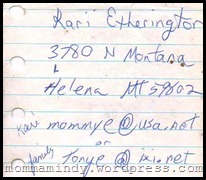 Kari Etherington
3780 N Montana
Helena MT 59802
Kari mommye@usa.net
or
family Tonye@ixi.net
mommamindy.wordpress.com